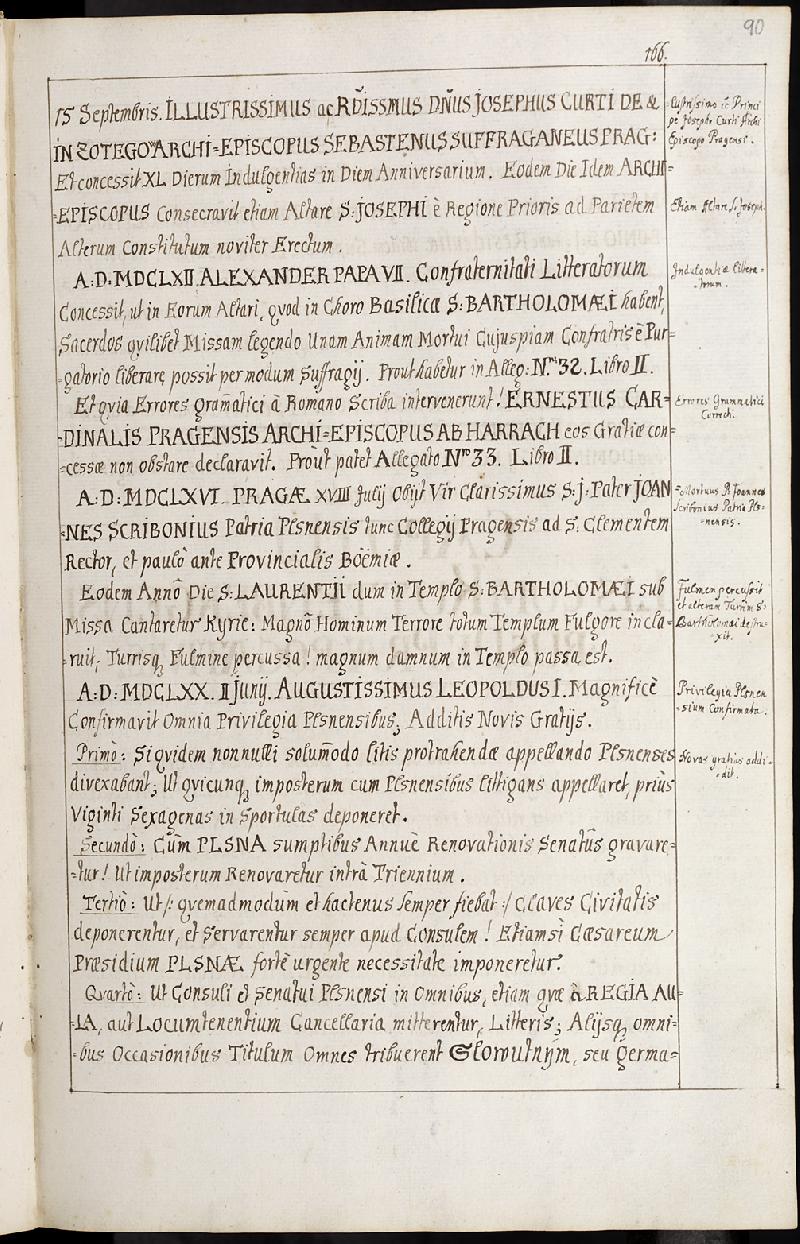 90
166.
15 Septembris. ILLUSTRISSIMUS ac RDISSMUS DNUS JOSEPHUS CURTI DE &
IN ZOTEGO ARCHI=EPISCOPUS SEBASTENUS SUFFRAGANEUS PRAG:
Et concessit XL Dierum Indulgentias in Diem Anniversarium. Eodem Die Idem ARCHI=
=EPISCOPUS Consecravit etiam Altare S: JOSEPHI è Regione Prioris ad Parietem
Alterum Constitutum noviter Erectum.
A:D: MDCLXII ALEXANDER PAPA VII. Confraternitati Litteratorum
Concessit, ut in Eorum Altari, qvod in Choro Basilica S: BARTHOLOMÆI habent,
Sacerdos qvilibet Missam legendo Unam Animam Mortui Cujuspiam Confratris è Pur=
=gatorio liberare possit per modum Suffragij. Prout habetur in Alleg: Nro 32. Libro II.
Et qvia Errores gramatici à Romano Scriba intervenerunt! ERNESTUS CAR=
=DINALIS PRAGENSIS ARCHI=EPISCOPUS AB HARRACH eos Gratiæ con=
=cessæ non obstare declaravit. Proùt patet Allegato Nro 33. Libro II.
A:D: MDCLXVI PRAGÆ XVIII Julij Obijt Vir Clarissimus S:J: Pater JOAN=
=NES SCRIBONIUS Patria Plsnensis tunc Collegij Pragensis ad S: Clementem
Rector, et paulò ante Provincialis Boëmiæ.
Eodem Annô Die S: LAURENTII dum in Templô S: BARTHOLOMÆI sub
Missa Cantaretur Kyrie: Magnô Hominum Terrore totum Templum Fulgore in cla=
=ruit, Turrisq; Fulmine percussa! magnum damnum in Templo passa est.
A:D: MDCLXX. II Junij. AUGUSTISSIMUS LEOPOLDUS I. Magnificè
Confirmavit Omnia Privilegia Plsnensibus; Additis Novis Gratijs.
Primò: Siqvidem nonnulli solummodo litis protrahendæ appellando Plsnenses
divexabant; Ut qvicunq; imposterum cum Plsnensibus littigans appellaret, priùs
Viginti Sexagenas in Sportulas deponeret.
Secundò: Cùm PLSNA sumptibus Annuè Renovationis Senatûs gravare=
=tur! Ut imposterum Renovaretur intrà Triennium.
Tertiò: Ut /: qvemadmodùm et hactenus semper fiebat :/ Claves Civitatis
deponerentur, et Servarentur semper apud Consulem! Etiamsì Cæsareum
Præsidium PLSNÆ fortè urgente necessitate imponeretur.
Qvartò: Ut Consuli et Senatui Plsnensi in Omnibus, etiam qvæ à REGIA AU=
=LA, aut Locumtenentium Cancellaria mitterentur, Litteris; Alijsq; omni=
=bus Occasionibus Titulum Omnes tribuerent Slowutnym, seu Germa=
Princi
pe Joseph Curti Archi
Episcopo Pragensi.
Etiam Altare S: Joseph.
Indulgentiæ libera=
Errores Grammatici
Correcti.
Mortuus P. Joannes
Scribonius Patria Pls=
=nensis.
Fulmen percussit
et alteram Turrim S:
Bartholomæi destru=
=xit.
Privilegia Plsnen
=sium Confirmata.
Novas gratias addi=
=dit.